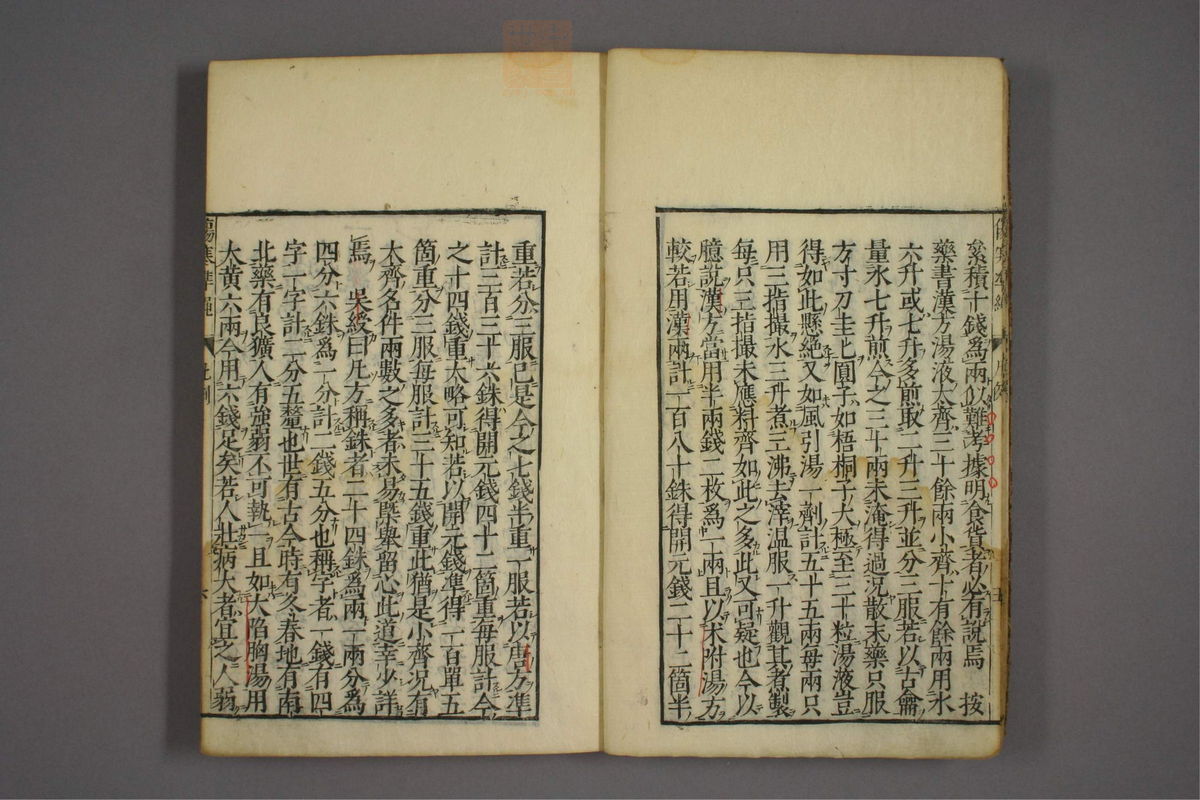 絫積十錢爲兩似難考據明食貨者必有說焉　按
藥書漢方湯液大齊三十餘兩小齊十有餘兩用水
六升或七升多煎取二升三升並分三服若以古龠
量水七升煎今之三十兩未淹得過況散末藥只服
方寸刀圭匕圓子如梧桐子大極至三十粒湯液豈
得如此懸絶又如風引湯一劑計五十五兩每兩只
用三指撮水三升煮三沸去滓温服一升觀其煮製
每只三指撮未應料齊如此之多此又可疑也今以
臆說漢方當用半兩錢二枚爲一兩且以术附湯方
較若用漢兩計一百八十銖得開元錢二十二箇半
重若分三服已是今之七錢半重一服若以唐方準
計三百三十六銖得開元錢四十二箇重每服計今
之十四錢重大略可知若以開元錢準得一百單五
箇重分三服每服計三十五錢重此猶是小齊況有
大齊名件兩數之多者未易槩擧留心此道幸少詳
焉　吳綬曰凡方稱銖者二十四銖爲兩一兩分爲
四分六銖爲一分計二錢五分也稱字者一錢有四
字一字計二分五釐也世有古今時有冬春地有南
北藥有良獷人有強弱不可執一且如大陷胸湯用
大黄六兩今用六錢足矣若人壯病大者宜之人弱
傷寒準繩
凡例
六